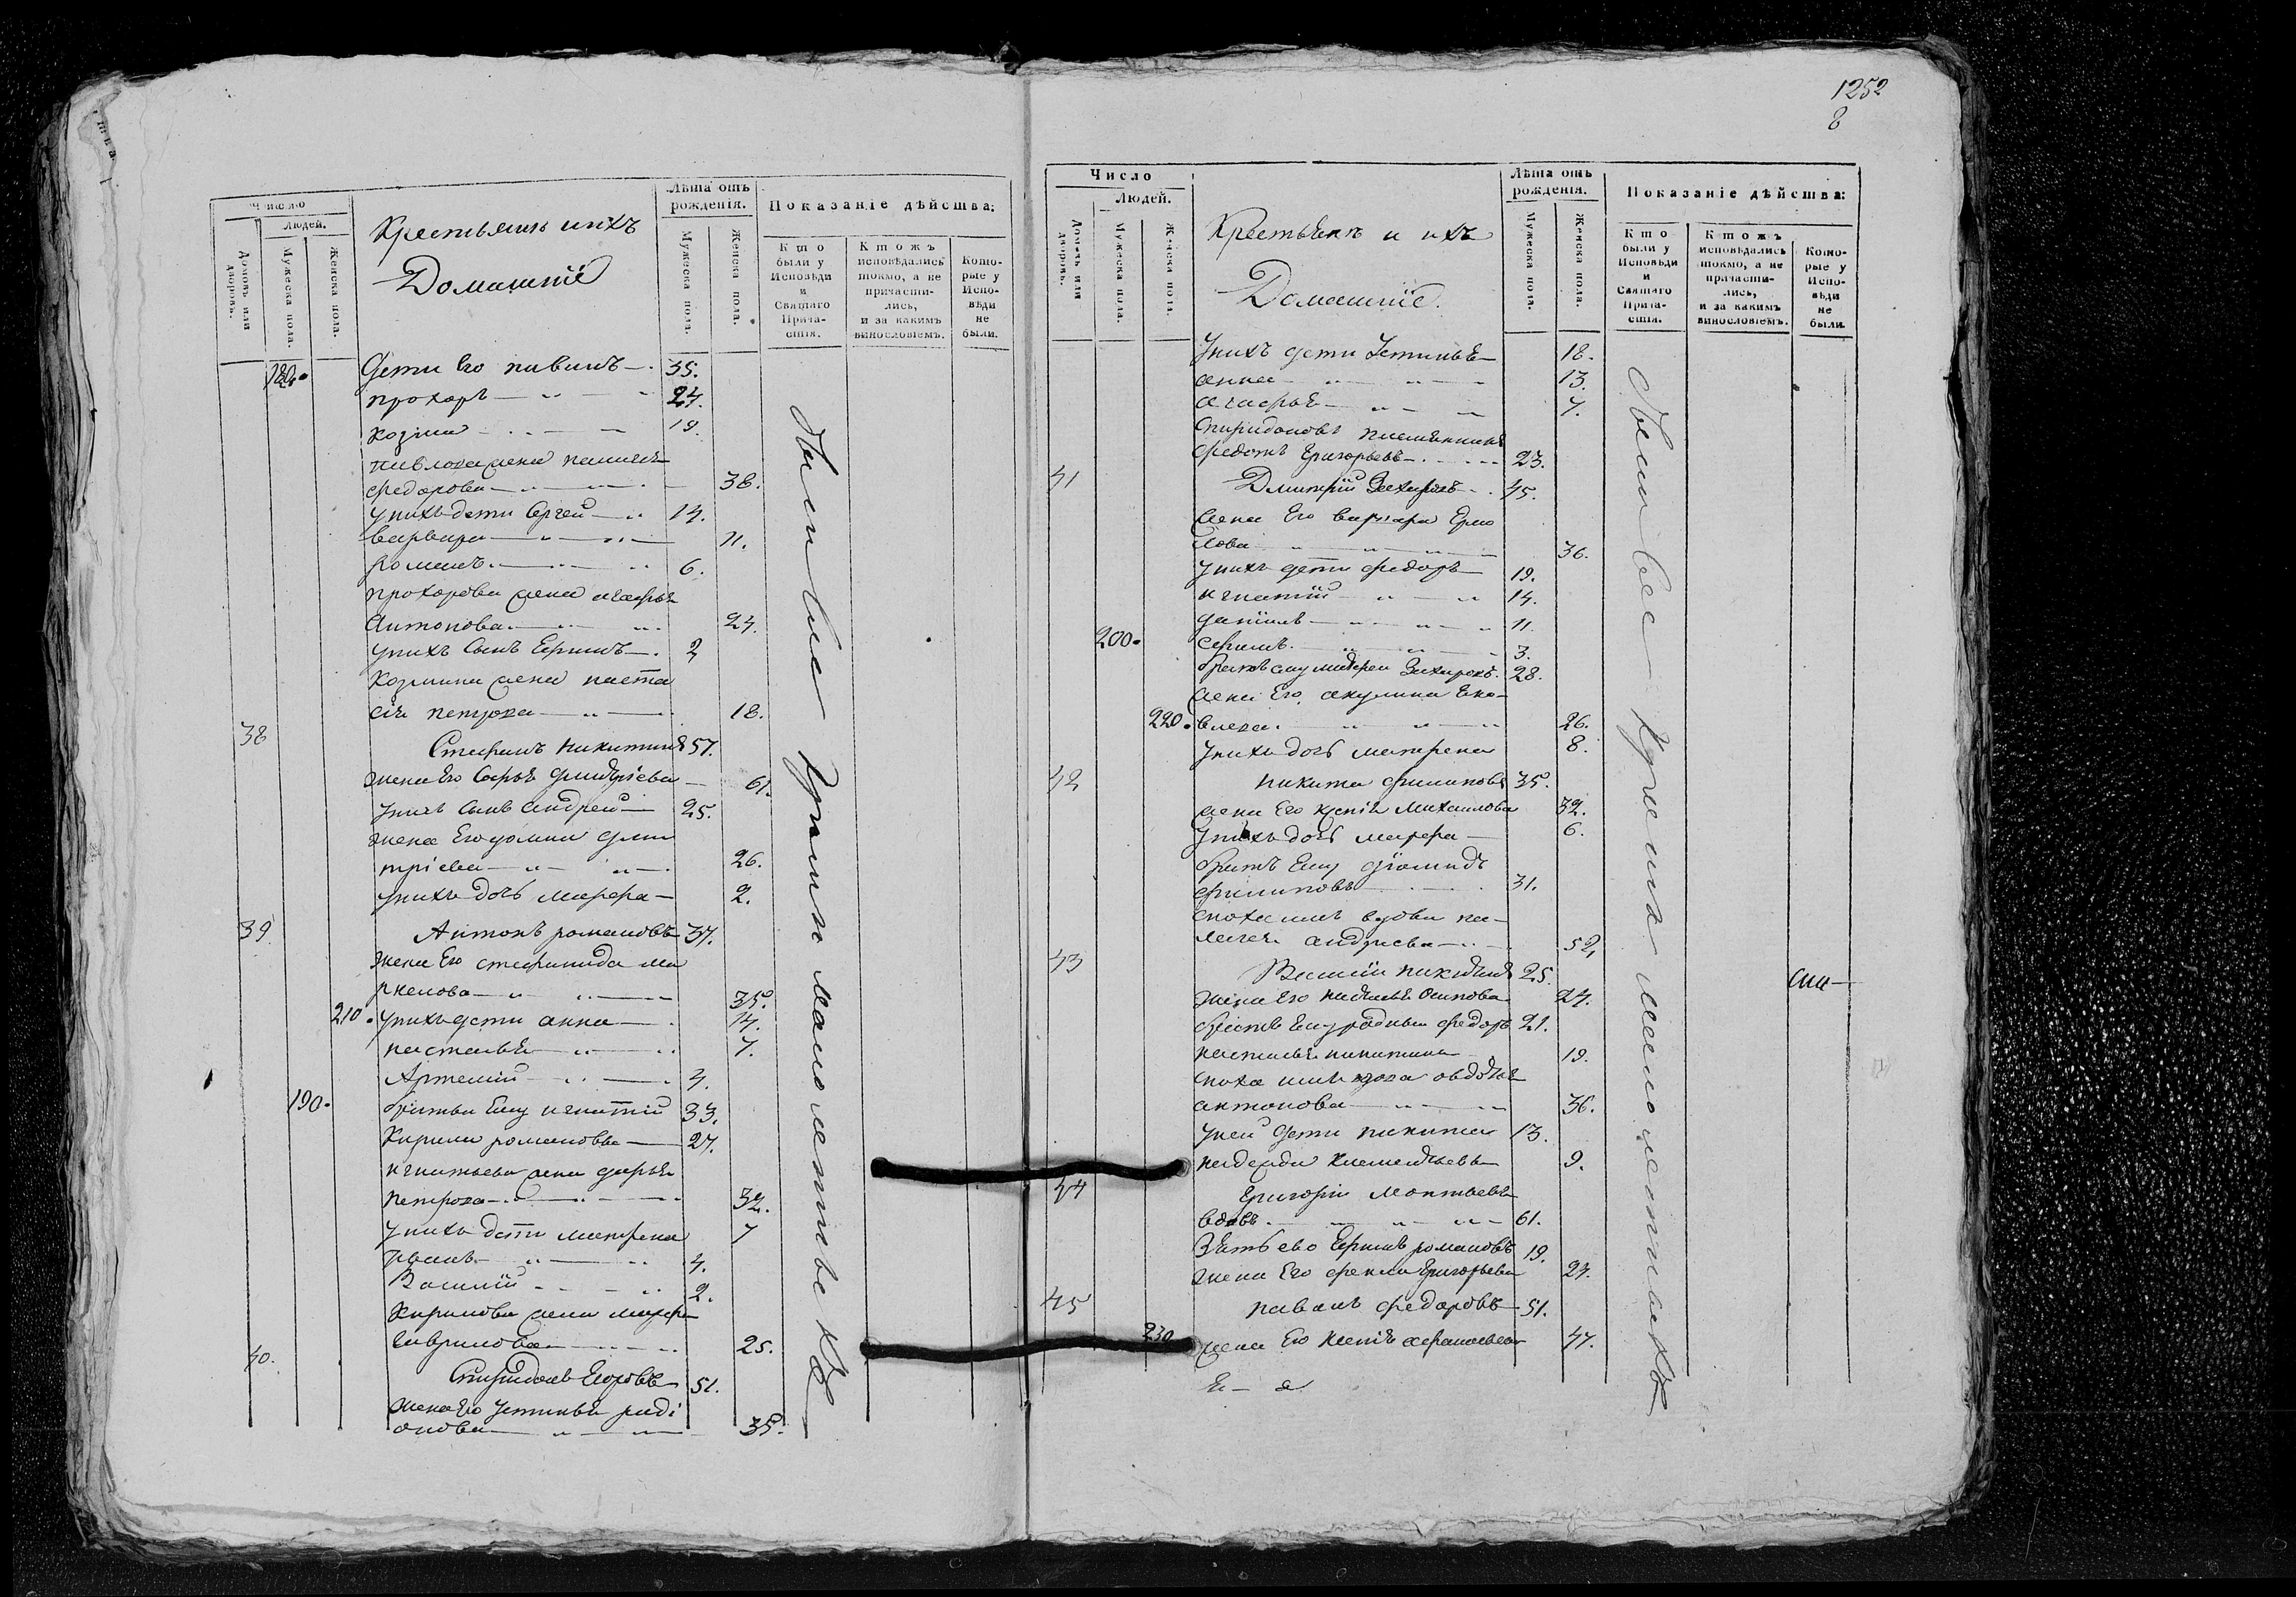 Число
Людей.
Домовъ или дворовъ.
Мужеска пола.
Женска пола.
Крестьянъ ихъ
Домашніе
Лѣта отъ рожденія.
Мужеска пола.
Женска пола.
Показаніе дѣйства:
Кто были у Исповѣди и Святаго Причастія.
Ктожъ исповѣдались токмо, а не причастились, и за какимъ винословіемъ.
Которые у Исповѣди не были.
Дети Его павилъ 35.
прохоръ 24.
козма 19.
павлова жена
федорова 38.
унихъ дети Сергей 14.
варвара 11.
романъ 6.
прохорова жена агафья
Антонова 24.
унихъ сынъ Ефимъ 2
козмина жена наста
сія петрова 18.
38
Стефанъ никитинъ 57.
жена Его софья дмитріева 61.
унихъ сынъ андрей 25.
жена Его домна дми
тріева 26.
унихъ дочь марфа 2.
39
Антонъ романовъ 37.
жена Его степанида ма
ркелова 35.
210. унихъ дети анна 14.
насталья 7.
Артемій 4.
190. братья Ему игнатій 33.
Кирила романовы 27.
игнатьева жена дарья
петрова 32.
унихъ дети матрена 7
Иванъ 4.
Василій 2.
Кирилова жена марфа
гаврилова 25.
40.
Спиридонъ Егоровъ 51.
жена Его устинья роді
онова 35.
Были все
1252
8
Число
Людей.
Домовъ или дворовъ.
Мужеска пола.
Женска пола.
Крестьянъ и ихъ
Домашніе.
Лѣта отъ рожденія.
Мужеска пола.
Женска пола.
Показаніе дѣйства:
Кто были у Исповѣди и Святаго Причастія.
Ктожъ исповѣдались токмо, а не причастились, и за какимъ винословіемъ.
Которые у Исповѣди не были.
унихъ дети Устинья 18.
анна 13.
агафья 7.
Спиридоновъ племянникъ
федотъ Григорьевъ 23.
41
Дмитрій Захаровъ 45.
жена Его варвара Ермо
лова 36.
унихъ дети федоръ 19.
игнатій 14.
данилъ 11.
200. Ефимъ 3.
братъ ему андрей Захаровъ 28.
жена Его акулина Яко
220. влева 26.
унихъ дочь матрена 8.
42
никита филиповъ 35.
жена Его ксенія Михаилова 32.
унихъ дочь марфа 6.
братъ Ему діомидъ
филиповъ 31.
сноха имъ вдова пе
лагея андреева 52,
43
Василій никитинъ 25.
жена Его наталья Осипова 24.
братъ Ему родный федоръ 21.
насталья никитина 19.
сноха имъ вдова овдотья
антонова 36.
уней дети никита 13.
надежда Клементьевы 9.
44
Григорій Моктьевъ
вдовъ 61.
Зять ево Ефимъ романовъ 19.
жена Его фекла Григорьева 24.
45
павелъ федоровъ 51.
230 жена Его ксенія афанасьева 47.
Были все